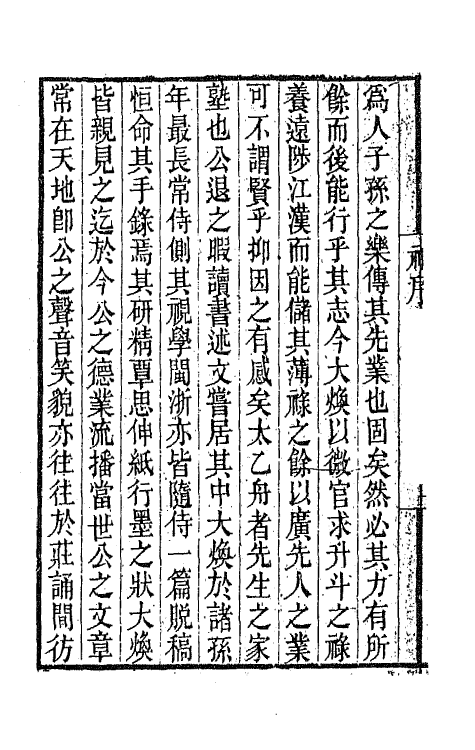 爲人子孫之樂傳其先業也固矣然必其力有所
餘而後能行乎其志今大煥以微官求升斗之祿
養遠陟江漢而能儲其薄祿之餘以廣先人之業
可不謂賢乎抑因之有感矣太乙舟者先生之家
塾也公退之暇讀書述文嘗居其中大煥於諸孫
年最長常侍側其視學閩浙亦皆隨侍一篇脫稿
恒命其手錄焉其研精覃思伸紙行墨之狀大煥
皆親見之迄於今公之德業流播當世公之文章
常在天地卽公之聲音笑貌亦往往於莊誦間彷